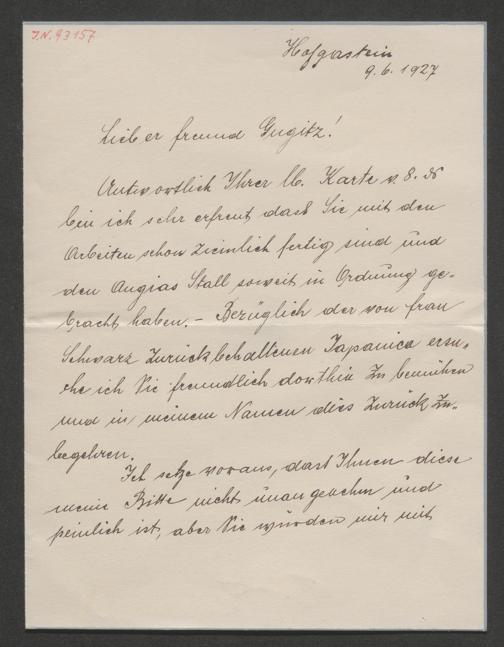 J.N. 93157
Hofgastein
9.6.1927
Lieber freund Gugitz!
Antwortlich Ihrer lb. Karte v. 8. ds
bin ich sehr erfreut dass Sie mit den
Arbeiten schon ziemlich fertig sind und
den Augias Stall soweit in Ordnung ge-
bracht haben. – Bezüglich der von frau
Schwarz zurückbehaltenen Japanica ersu-
che ich Sie freundlich dorthin zu bemühen
und in meinem Namen dies zurück zu-
begehren.
Ich setze voraus, dass Ihnen diese
meine Bitte nicht unangenehm und
peinlich ist, aber Sie würden mir mit